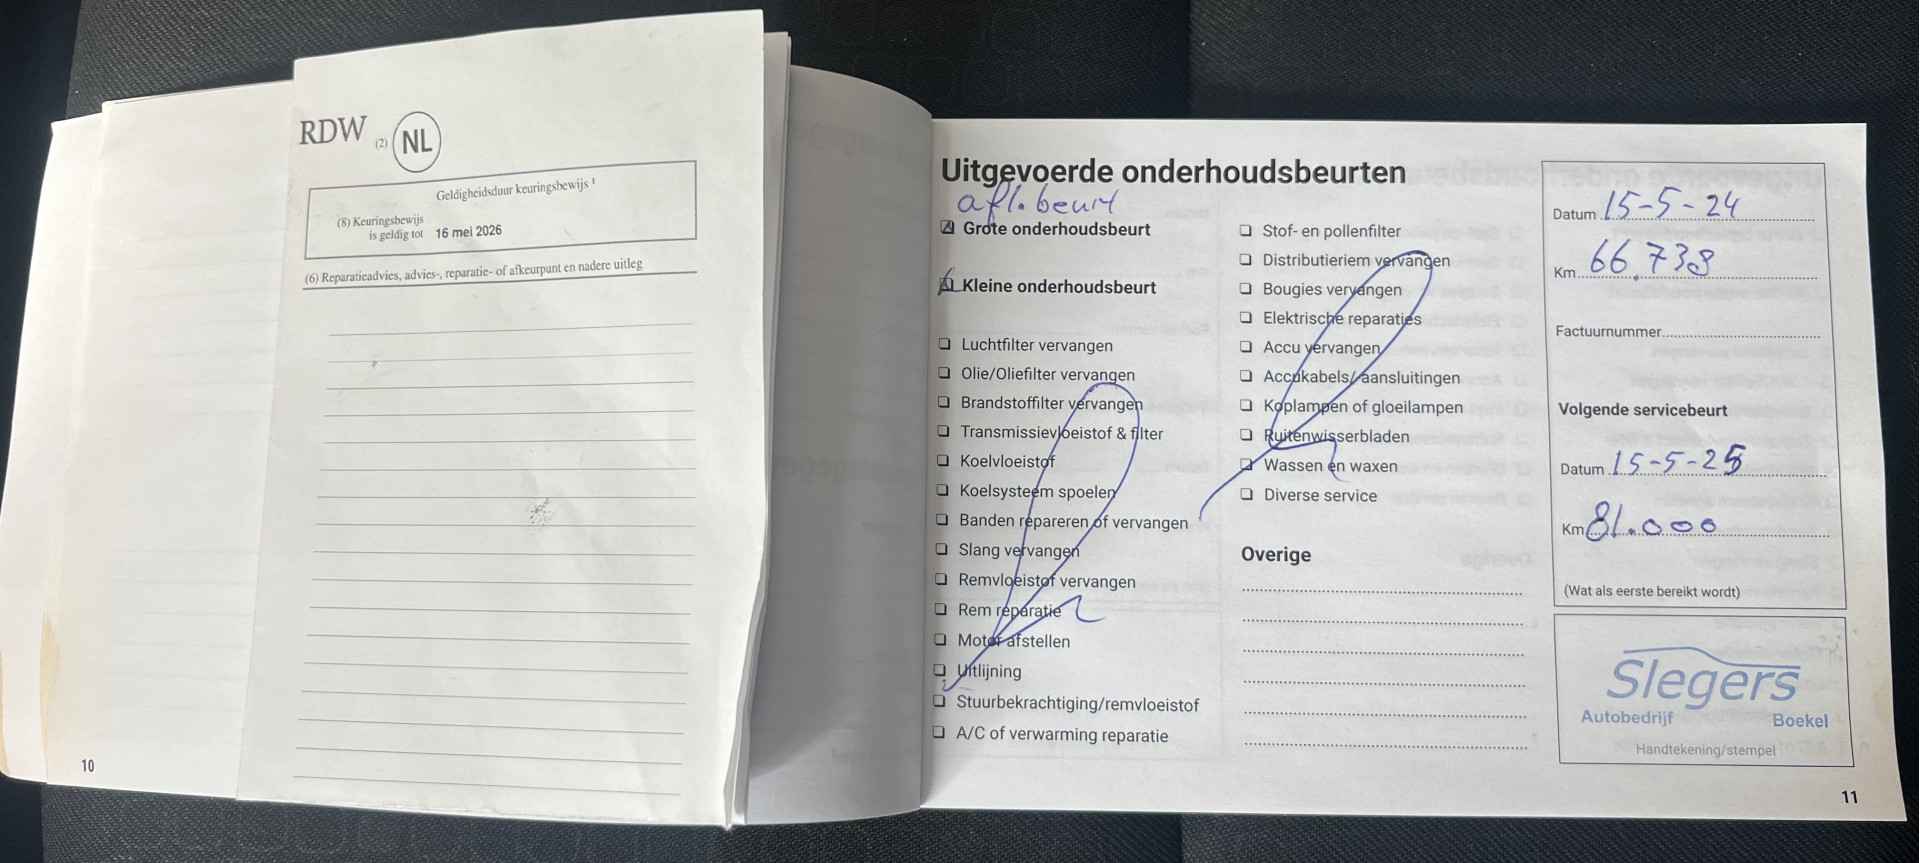 RDW (2) NL
Geldigheidsduur keuringsbewijs 1
(8) Keuringsbewijs
is geldig tot 16 mei 2026
(6) Reparatieadvies, advies-, reparatie- of afkeurpunt en nadere uitleg
10
Uitgevoerde onderhoudsbeurten
afl. beurt
Grote onderhoudsbeurt
Kleine onderhoudsbeurt
Luchtfilter vervangen
Olie/Oliefilter vervangen
Brandstoffilter vervangen
Transmissievloeistof & filter
Koelvloeistof
Koelsysteem spoelen
Banden repareren of vervangen
Slang vervangen
Remvloeistof vervangen
Rem reparatie
Motor afstellen
Uitlijning
Stuurbekrachtiging/remvloeistof
A/C of verwarming reparatie
Stof- en pollenfilter
Distributieriem vervangen
Bougies vervangen
Elektrische reparaties
Accu vervangen
Accukabels/aansluitingen
Koplampen of gloeilampen
Ruitenwisserbladen
Wassen en waxen
Diverse service
Overige
Datum 15-5-24
Km 66.738
Factuurnummer
Volgende servicebeurt
Datum 15-5-25
Km 81.000
(Wat als eerste bereikt wordt)
Slegers
Autobedrijf Boekel
Handtekening/stempel
11